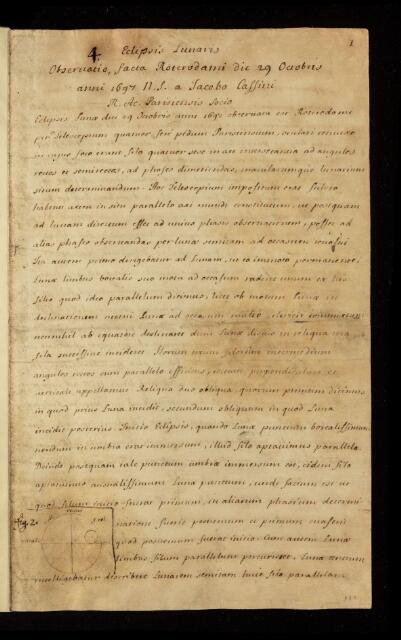 1
4 Eclipsis Lunaris
Observatio, facta Roterodami die 29 Octobris
anni 1697 N.S. a Jacobo Cassini
R. Ac. Parisiensis Socio
Eclipsis Lunæ die 29 Octobris anni 1697 observata est Roterodami
per Telescopium quatuor ferè pedum Parisiensium, oculari convexo
in cujus foco erant fila quatuor sese in axe intersecantia ad angulos
rectos et semirectos, ad phases dimetiendas, macularumque lunarium
situm determinandum. Hoc Telescopium impositum erat fulcro
habenti axem in situ parallelo axi mundi constitutum, ut postquam
ad lunam directum esset ad unius phasis observationem, posset ad
alias phases observandas per lunæ semitam ad occasum
Ita autem primo dirigebatur ad Lunam, ut eo immoto permanente,
Lunæ limbus borealis suo motu ad occasum raderet unum ex his
filis quod ideo parallelum dicimus, licet ob motum Lunæ in
declinationem
nonnihil ab æquatore declinaret dum Lunæ discus in reliqua
fila successive incideret. Horum unum filorum
angulos rectos cum parallelo efficiens,
verticale appellamus Reliqua duo obliqua quorum primum dicimus
in quod prius Luna incidit, secundum obliquum in quod Luna
incidit posterius. Initio Eclipsis, quando Lunæ punctum borealissimum
nondum in umbra erat immersum, illud filo aptavimus parallelo
Deinde postquam tale punctum umbræ immersum est, eidem filo
aptavimus australissimum Lunæ punctum, unde factum est ut
quod filum initio fuerat primum, in aliarum phasium determi
Fig. 2. natione fuerit postremum et primum evaserit
quod postremum fuerat initio. Cum autem Lunæ
limbus filum parallelum percurreret, Lunæ centrum
intelligebatur describere Lunarem semitam huic filo parallelam.